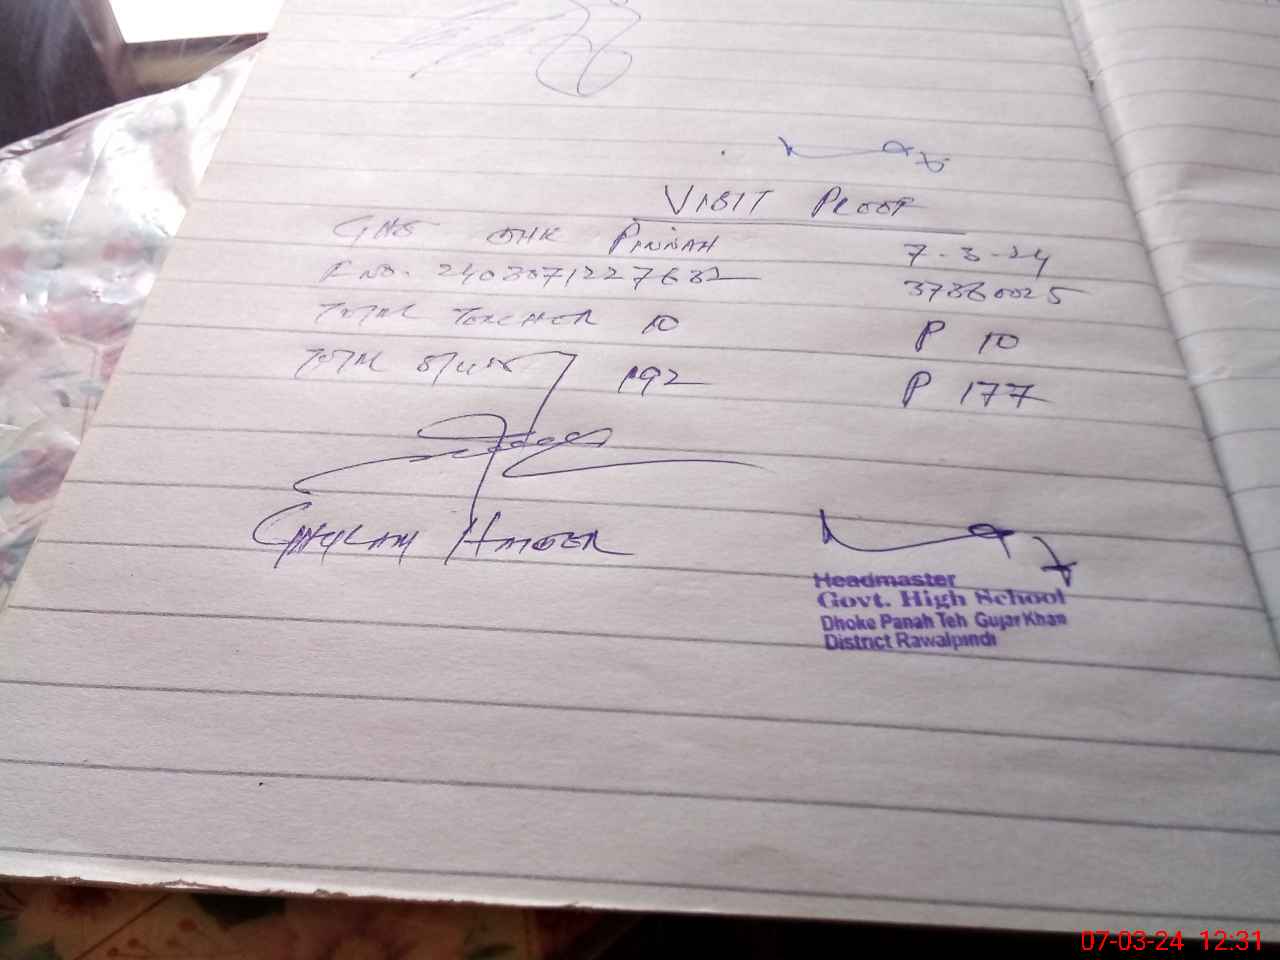 VISIT PROOF
GHS DHK PANNAH 7-3-24
F NO. 2403071227632 37360025
TOTAL TEACHER 10 P 10
TOTAL 192 P 177
GHULAM HAIDER
Headmaster
Govt. High School
Dhoke Panah Teh Gujar Khan
District Rawalpindi
07-03-24 12:31